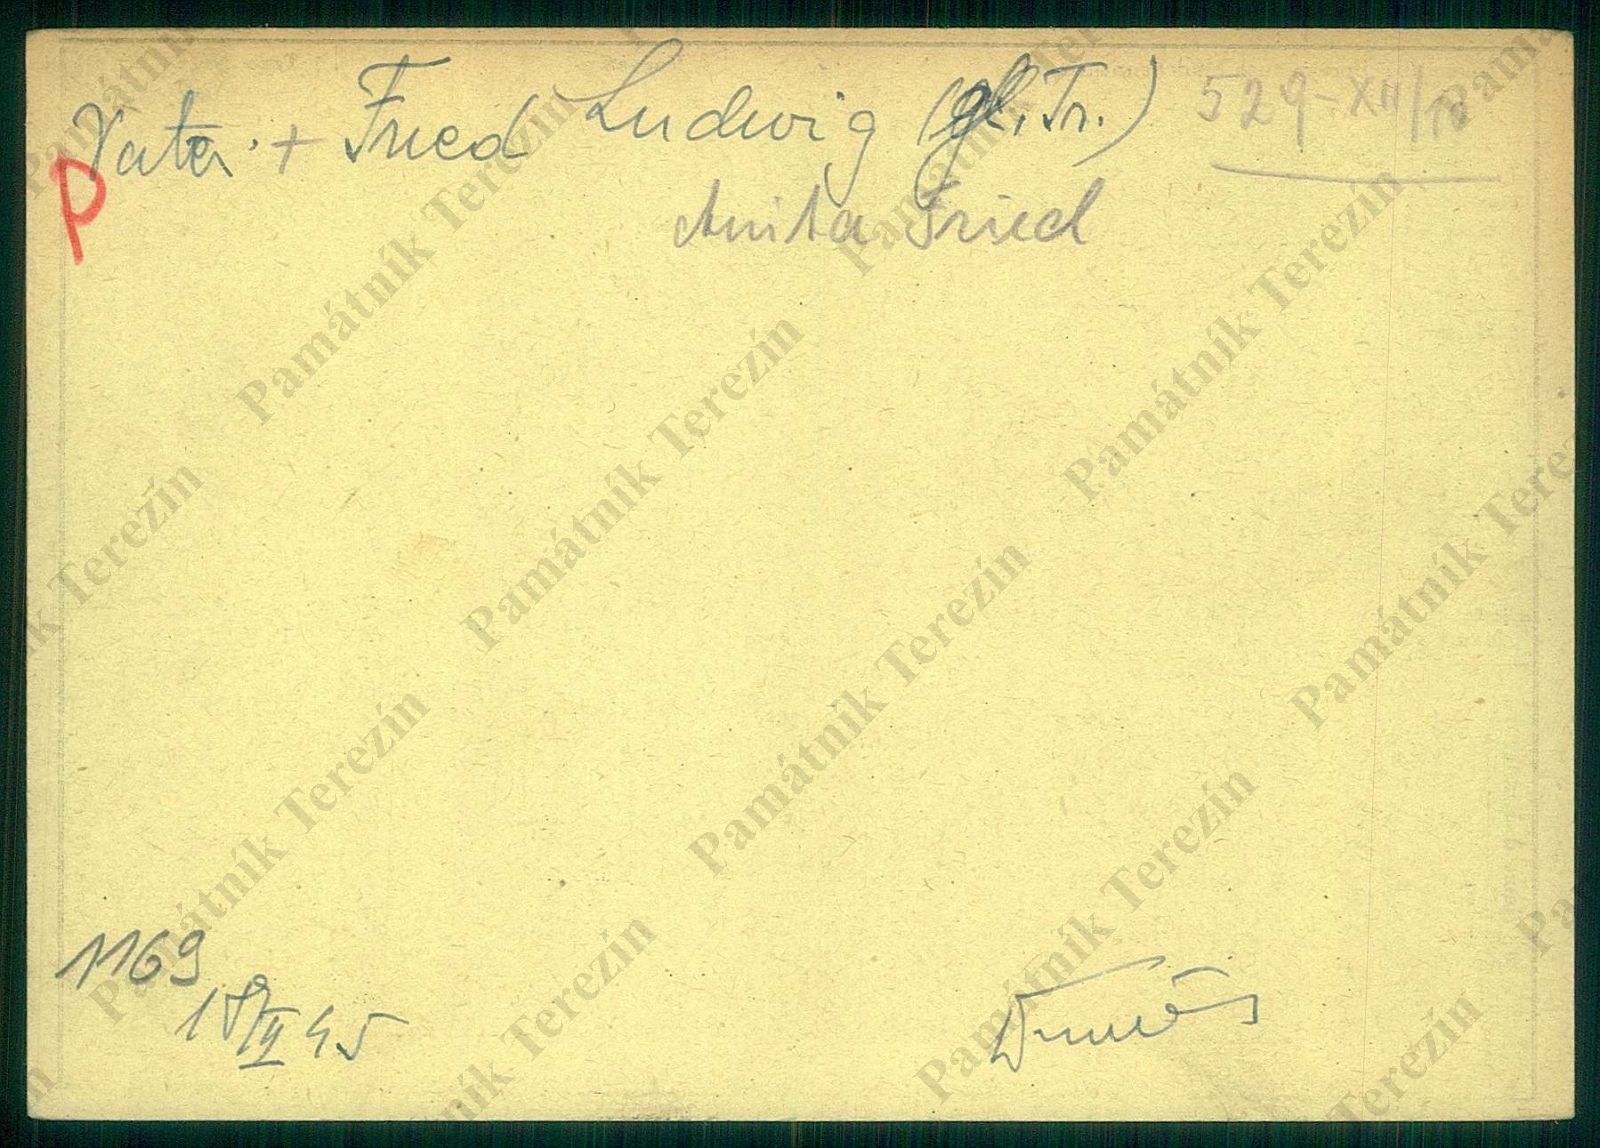 Vater + Fried Ludwig (gl. Tr.) 529-XII/10
P
Anita Fried
1169
18/II 45
Památník Terezín